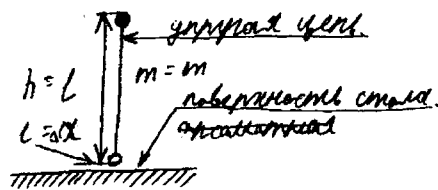 упругая цепь.
h = l
m = m
l = Δx
поверхность стола